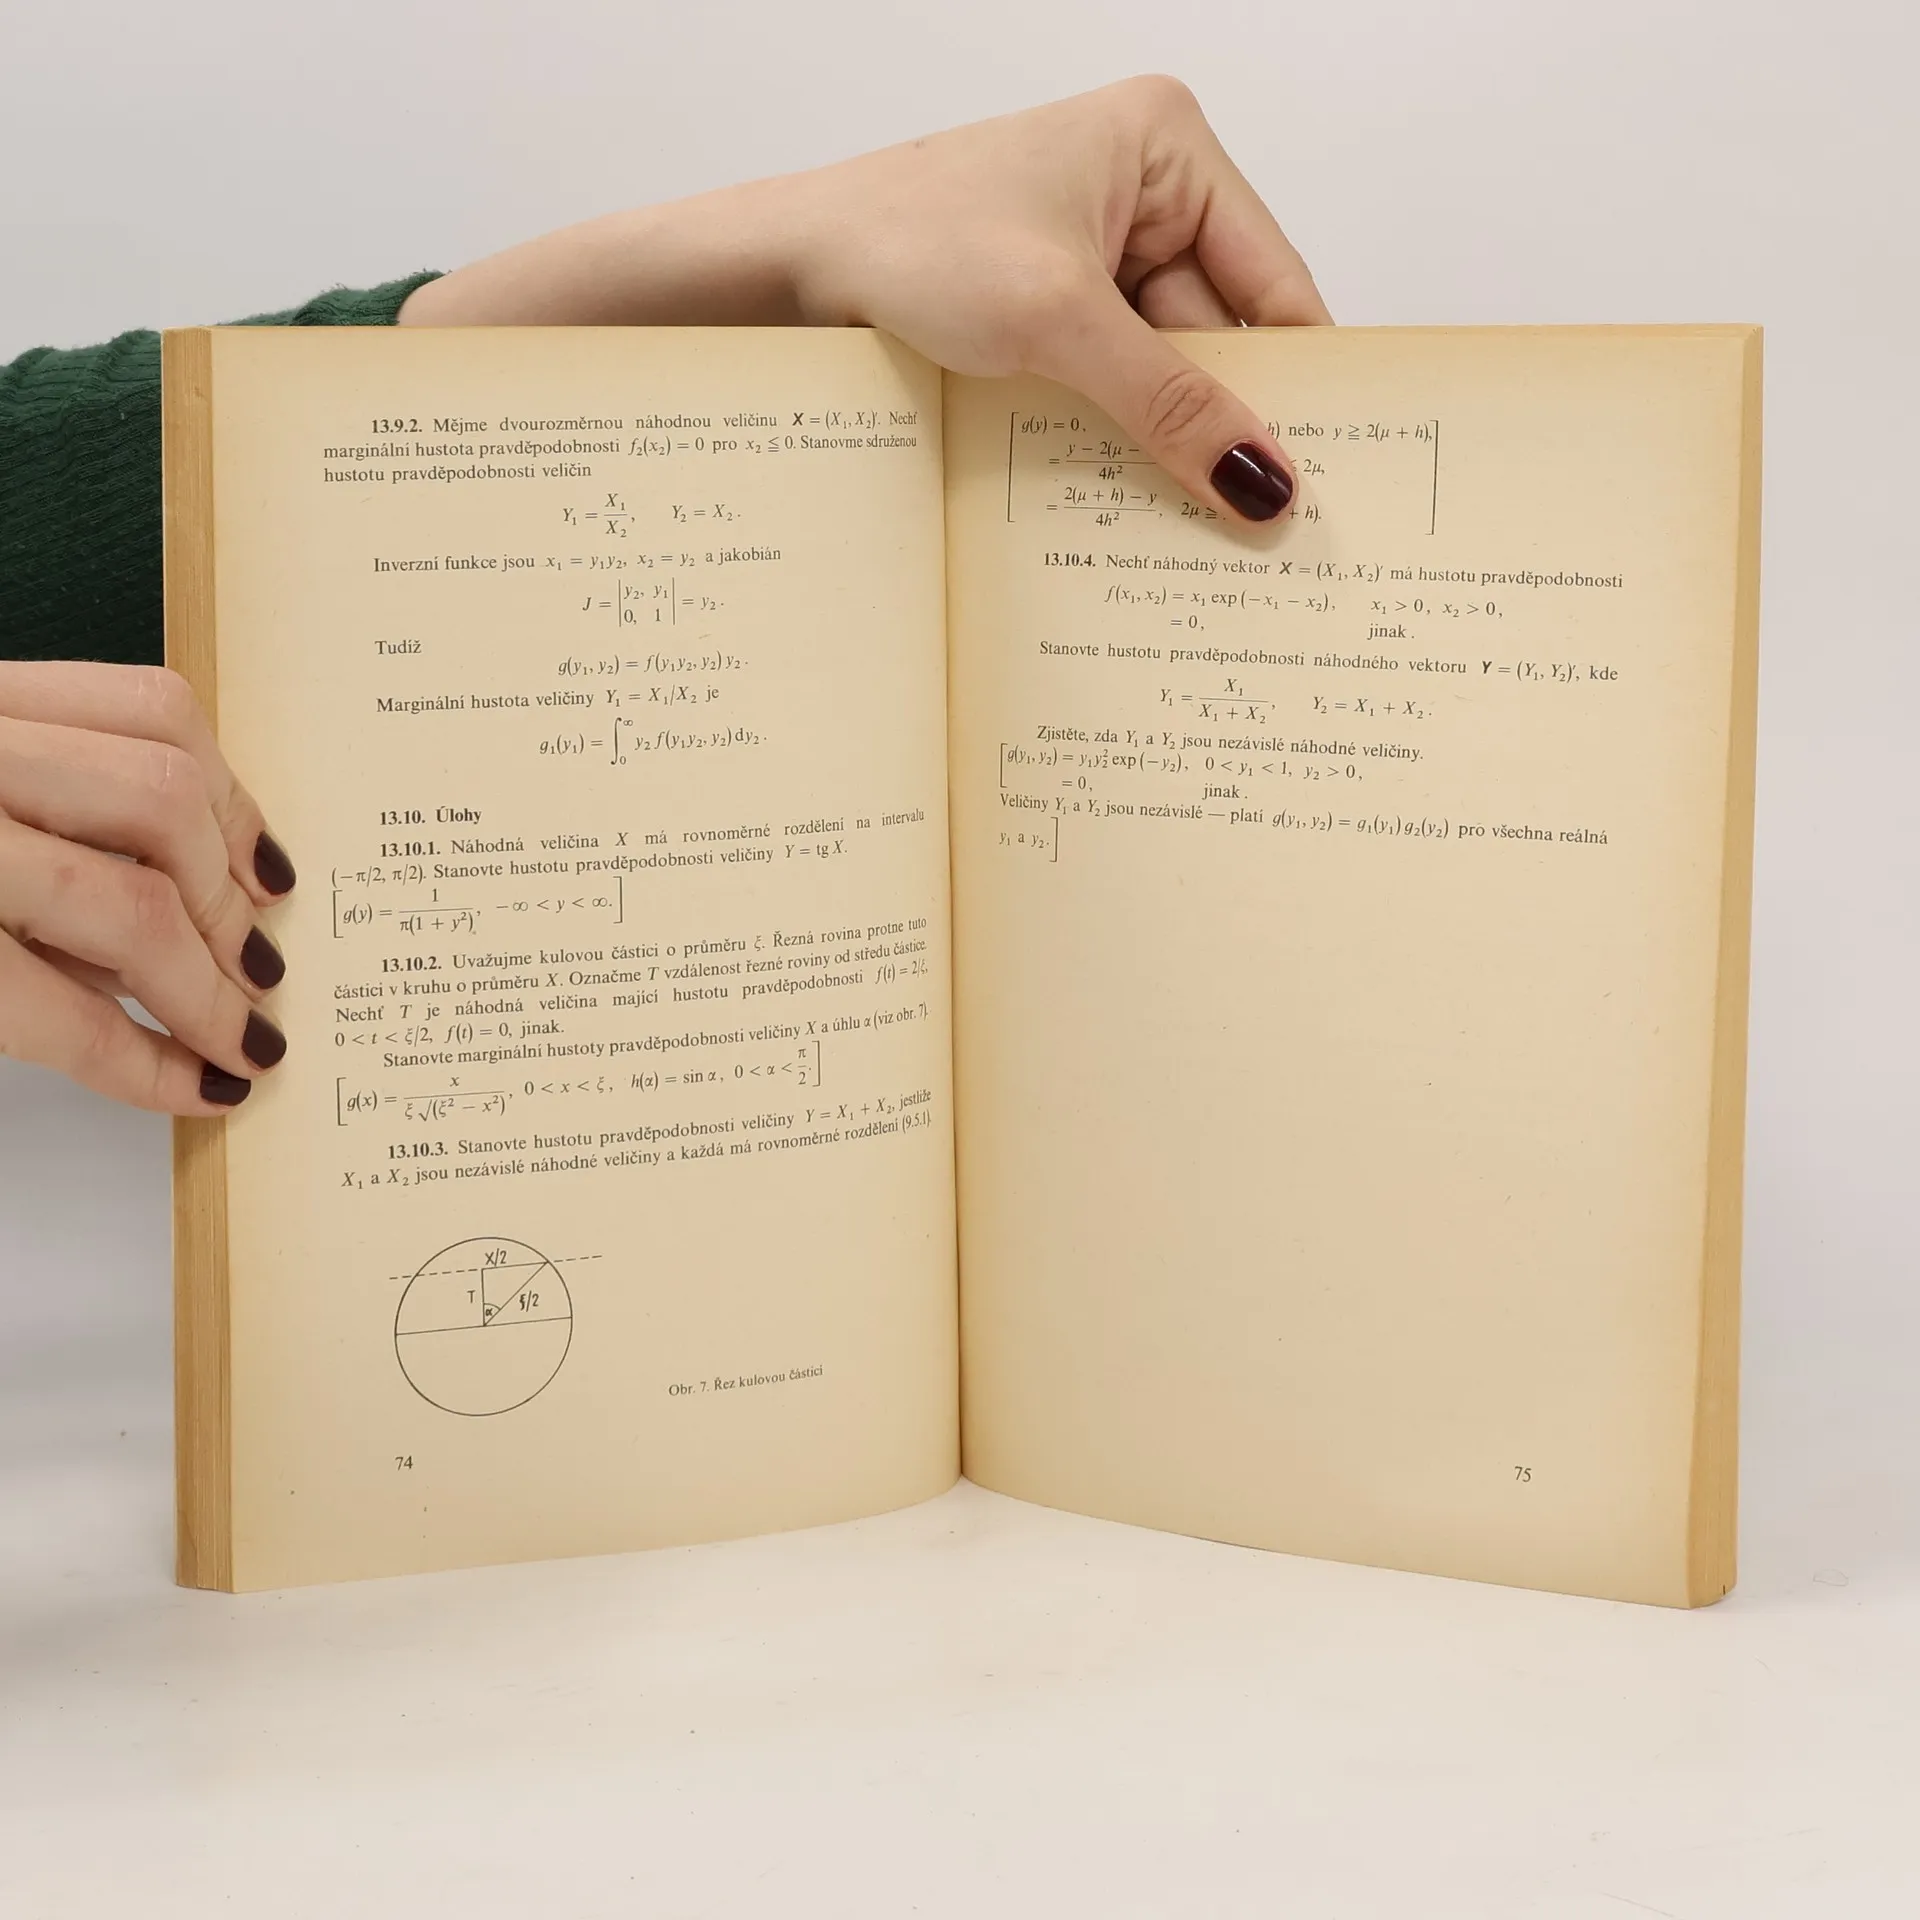 13.9.2. Mějme dvourozměrnou náhodnou veličinu X = (X₁, X₂)′. Nechť
marginální hustota pravděpodobnosti f₂(x₂) = 0 pro x₂ ≦ 0. Stanovme sdruženou
hustotu pravděpodobnosti veličin
Y₁ = X₁/X₂, Y₂ = X₂.
Inverzní funkce jsou x₁ = y₁y₂, x₂ = y₂ a jakobián
J = |y₂, y₁
0, 1| = y₂.
Tudíž
g(y₁, y₂) = f(y₁y₂, y₂) y₂.
Marginální hustota veličiny Y₁ = X₁/X₂ je
g₁(y₁) = ∫₀^∞ y₂ f(y₁y₂, y₂) dy₂.
13.10. Úlohy
13.10.1. Náhodná veličina X má rovnoměrné rozdělení na intervalu
(−π/2, π/2). Stanovte hustotu pravděpodobnosti veličiny Y = tg X.
[g(y) = 1/π(1 + y²), −∞ < y < ∞.]
13.10.2. Uvažujme kulovou částici o průměru ξ. Řezná rovina protne tuto
částici v kruhu o průměru X. Označme T vzdálenost řezné roviny od středu částice.
Nechť T je náhodná veličina mající hustotu pravděpodobnosti f(t) = 2/ξ,
0 < t < ξ/2, f(t) = 0, jinak.
Stanovte marginální hustoty pravděpodobnosti veličiny X a úhlu α (viz obr. 7).
[g(x) = x/ξ √(ξ² − x²), 0 < x < ξ, h(α) = sin α, 0 < α < π/2.]
13.10.3. Stanovte hustotu pravděpodobnosti veličiny Y = X₁ + X₂, jestliže
X₁ a X₂ jsou nezávislé náhodné veličiny a každá má rovnoměrné rozdělení (9.5.1).
X/2
T
α
ξ/2
Obr. 7. Řez kulovou částicí
74
[g(y) = 0, h) nebo y ≧ 2(μ + h),
= y − 2(μ − /4h² 2μ,
= 2(μ + h) − y/4h², 2μ ≧ + h).]
13.10.4. Nechť náhodný vektor X = (X₁, X₂)′ má hustotu pravděpodobnosti
f(x₁, x₂) = x₁ exp (−x₁ − x₂), x₁ > 0, x₂ > 0,
= 0, jinak.
Stanovte hustotu pravděpodobnosti náhodného vektoru Y = (Y₁, Y₂)′, kde
Y₁ = X₁/X₁ + X₂, Y₂ = X₁ + X₂.
Zjistěte, zda Y₁ a Y₂ jsou nezávislé náhodné veličiny.
[g(y₁, y₂) = y₁y₂² exp (−y₂), 0 < y₁ < 1, y₂ > 0,
= 0, jinak.
Veličiny Y₁ a Y₂ jsou nezávislé — platí g(y₁, y₂) = g₁(y₁) g₂(y₂) pro všechna reálná
y₁ a y₂.]
75